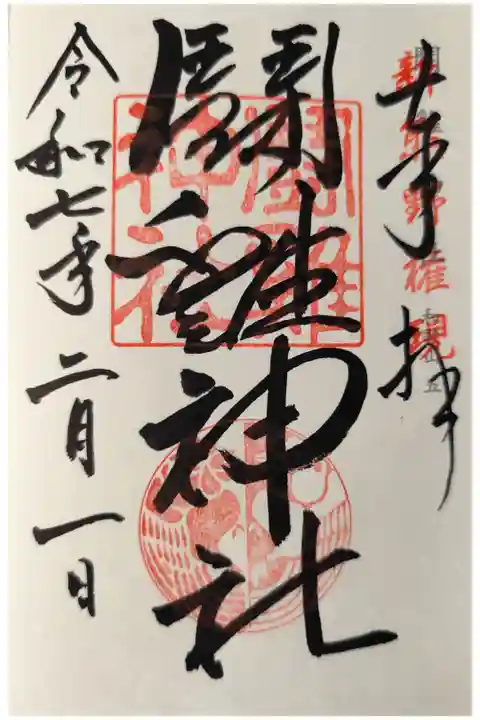 奉拝
新熊野權現
闘雞神社
闘雞神社
令和七年二月一日